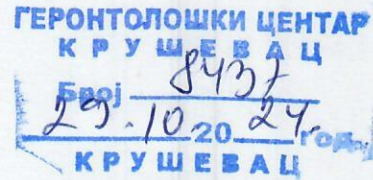 ГЕРОНТОЛОШКИ ЦЕНТАР
КРУШЕВАЦ
Број 8437
29.10.2024. год.
КРУШЕВАЦ